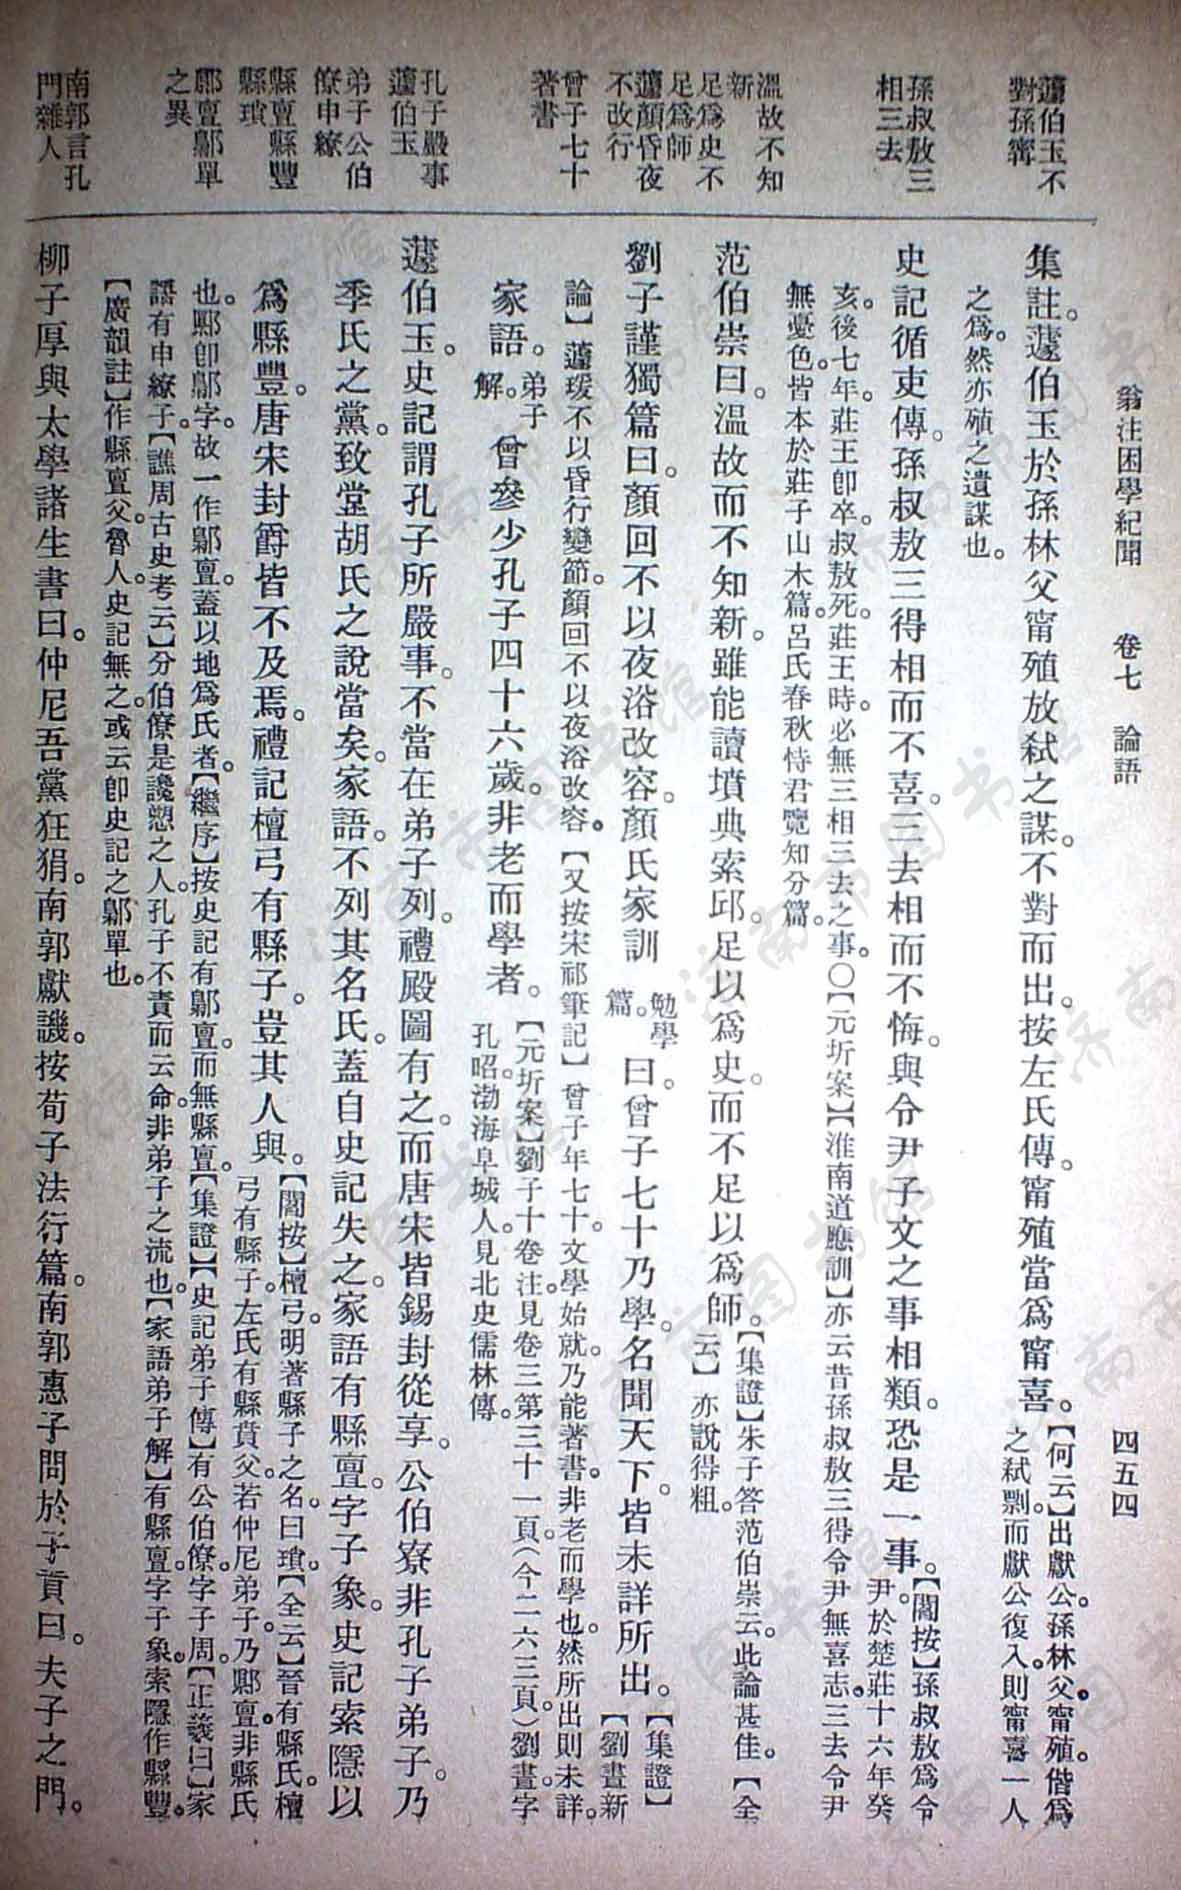 翁注困學紀聞　卷七　論語　四五四
蘧伯玉不
對孫甯
孫叔敖三
相三去
溫故不知
新
足爲史不
足爲師
蘧顏昏夜
不改行
曾子七十
著書
孔子嚴事
蘧伯玉
弟子公伯
僚申繚
縣亶縣豐
縣瑣
鄡亶鄡單
之異
南郭言孔
門雜人
集註。蘧伯玉於孫林父甯殖放弒之謀。不對而出。按左氏傳。甯殖當爲甯喜。【何云】出獻公。孫林父甯殖。偕爲
之弒剽。而獻公復入。則甯喜一人
之爲。然亦殖之遺謀也。
史記循吏傳。孫叔敖三得相而不喜。三去相而不悔。與令尹子文之事相類。恐是一事。【閻按】孫叔敖爲令
尹。於楚莊十六年癸
亥。後七年。莊王卽卒。叔敖死。莊王時。必無三相三去之事。〇【元圻案】【淮南道應訓】亦云昔孫叔敖三得令尹無喜志。三去令尹
無憂色。皆本於莊子山木篇。呂氏春秋恃君覽知分篇。
范伯崇曰。溫故而不知新。雖能讀墳典索邱。足以爲史。而不足以爲師。【集證】朱子答范伯崇云。此論甚佳。【全
云】亦說得粗。
劉子謹獨篇曰。顏回不以夜浴改容。顏氏家訓勉學
篇。曰。曾子七十乃學。名聞天下。皆未詳所出。【集證】
【劉晝新
論】蘧瑗不以昏行變節。顏回不以夜浴改容。【又按宋祁筆記】曾子年七十。文學始就。乃能著書。非老而學也。然所出則未詳。
家語。弟子
解。曾參少孔子四十六歲。非老而學者。【元圻案】劉子十卷。注見卷三第三十一頁（今二六三頁）劉晝。字
孔昭。渤海阜城人。見北史儒林傳。
蘧伯玉。史記謂孔子所嚴事。不當在弟子列。禮殿圖有之。而唐宋皆錫封從享。公伯寮非孔子弟子。乃
季氏之黨。致堂胡氏之說當矣。家語。不列其名氏。蓋自史記失之。家語有縣亶。字子象。史記索隱以
爲縣豐。唐宋封爵皆不及焉。禮記檀弓有縣子。豈其人與。【閻按】檀弓。明著縣子之名。曰瑣。【全云】晉有縣氏。檀
弓有縣子。左氏有縣賁父。若仲尼弟子。乃鄡亶。非縣氏
也。鄡卽鄡字。故一作鄡亶。蓋以地爲氏者。【繼序】按史記有鄡亶。而無縣亶。【集證】【史記弟子傳】有公伯僚。字子周。【正義曰】家
語有申繚子。【譙周古史考云】分伯僚是讒愬之人。孔子不責而云命。非弟子之流也。【家語弟子解】有縣亶。字子象。索隱作縣豐。
【廣韻註】作縣亶父。魯人。史記無之。或云卽史記之鄡單也。
柳子厚與太學諸生書曰。仲尼吾黨狂狷。南郭獻譏。按荀子法行篇。南郭惠子問於子貢曰。夫子之門。